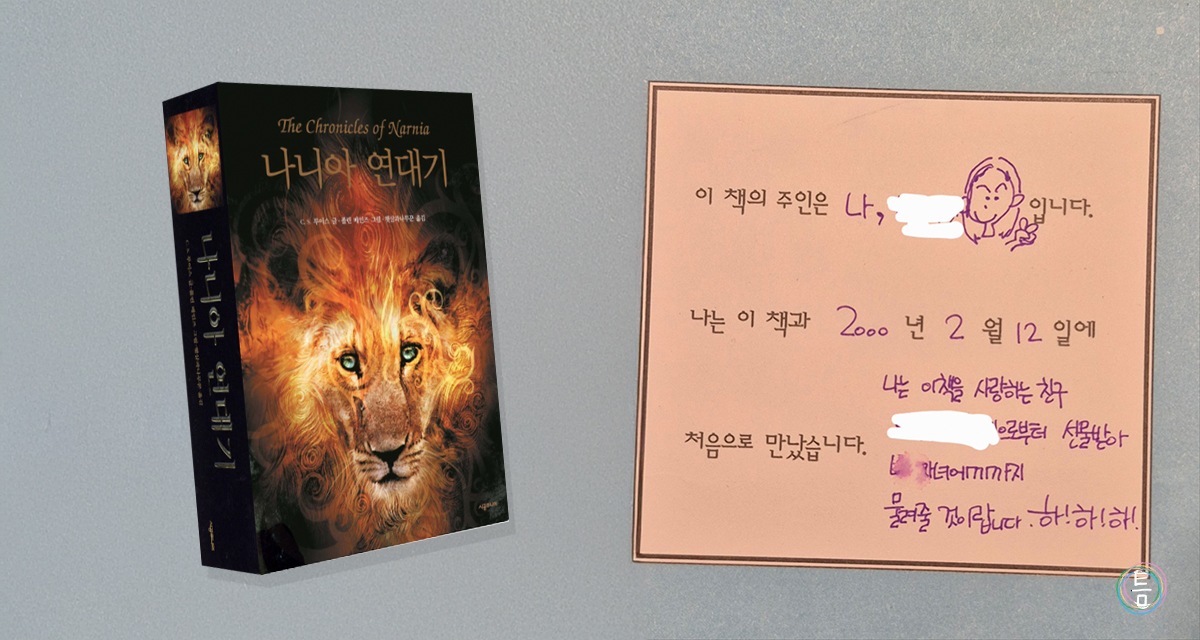 The Chronicles of Narnia
나니아 연대기
C. S. 루이스 글·폴린 베인즈 그림·햇살과나무꾼 옮김
나니아 연대기
C. S. 루이스 글·폴린 베인즈 그림·햇살과나무꾼 옮김
이 책의 주인은 나, 입니다.
나는 이 책과 2000 년 2 월 12 일에
처음으로 만났습니다.
나는 이책을 사랑하는 친구
으로부터 선물받아
자녀에게까지
물려줄 것이랍니다. 하!하!하!
틈